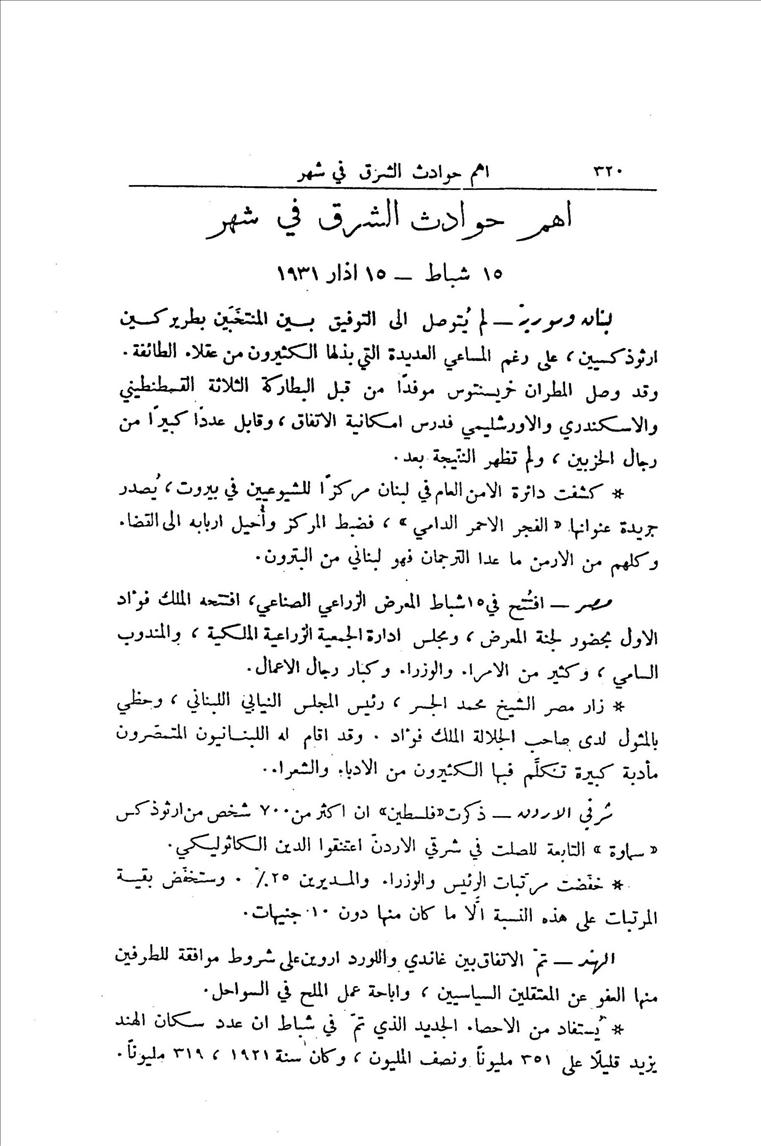 ٣٢٠ اهم حوادث الشرق في شهر
اهم حوادث الشرق في شهر
١٥ شباط — ١٥ اذار ١٩٣١
لبنان وسورية — لم يُتوصل الى التوفيق بين المنتخَبين بطريركين
ارثوذكسيين ، على رغم المساعي العديدة التي بذلها الكثيرون من عقلاء الطائفة .
وقد وصل المطران خريسنتوس موفدًا من قبل البطاركة الثلاثة القسطنطيني
والاسكندري والاورشليمي فدرس امكانية الاتفاق ، وقابل عددًا كبيرًا من
رجال الحزبين ، ولم تظهر النتيجة بعد .
* كشفت دائرة الامن العام في لبنان مركزًا للشيوعيين في بيروت ، يُصدر
جريدة عنوانها « الفجر الاحمر الدامي » ، فضبط المركز وأُحيل اربابه الى القضاء
وكلهم من الارمن ما عدا الترجمان فهو لبناني من البترون .
مصر — افتُتح في ١٥ شباط المعرض الزراعي الصناعي ، افتتحه الملك فوءاد
الاول بحضور لجنة المعرض ، ومجلس ادارة الجمعية الزراعية الملكية ، والمندوب
السامي ، وكثير من الامراء والوزراء وكبار رجال الاعمال .
* زار مصر الشيخ محمد الجسر ، رئيس المجلس النيابي اللبناني ، وحظي
بالمثول لدى صاحب الجلالة الملك فوءاد . وقد اقام له اللبنانيون المتمصّرون
مأدبة كبيرة تكلَّم فيها الكثيرون من الادباء والشعراء .
شرقي الاردن — ذكرت « فلسطين » ان اكثر من ٧٠٠ شخص من ارثوذكس
« سماوة » التابعة للصلت في شرقي الاردنّ اعتنقوا الدين الكاثوليكي .
* خفّضت مرتبات الرئيس والوزراء والمديرين ٢٥٪ . وستخفّض بقية
المرتبات على هذه النسبة الَّا ما كان منها دون ١٠ جنيهات .
الهند — تمّ الاتفاق بين غاندي واللورد اروين على شروط موافقة للطرفين
منها العفو عن المعتقلين السياسيين ، واباحة عمل الملح في السواحل .
* يُستفاد من الاحصاء الجديد الذي تمّ في شباط ان عدد سكان الهند
يزيد قليلًا على ٣٥١ مليونًا ونصف المليون ، وكان سنة ١٩٢١ ، ٣١٩ مليونًا .